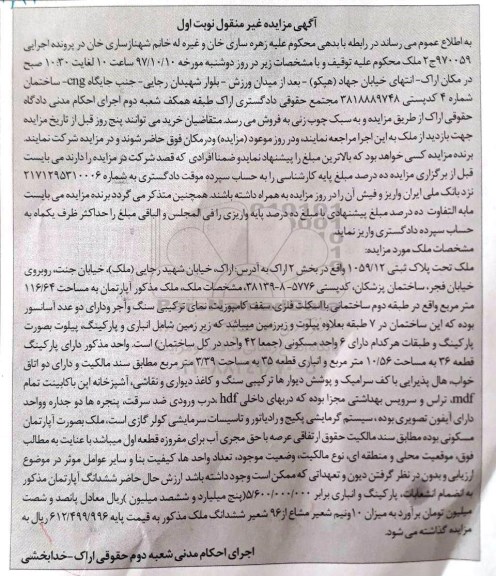 آگهی مزایده غیر منقول نوبت اول
به اطلاع عموم می رساند در رابطه با بدهی محکوم علیه زهره ساری خان و غیره له خانم شهناز ساری خان در پرونده اجرایی
۹۷۰۰۵۹ج۲ ملک محکوم علیه توقیف و با مشخصات زیر در روز دوشنبه مورخه ۹۷/۱۰/۱۰ ساعت ۱۰ لغایت ۱۰:۳۰ صبح
در مکان اراک-انتهای خیابان جهاد (هپکو) - بعد از میدان ورزش -بلوار شهیدان رجایی- جنب جایگاه cng- ساختمان
شماره ۴ کدپستی ۳۸۱۸۸۸۹۷۴۸ مجتمع حقوقی دادگستری اراک طبقه همکف شعبه دوم اجرای احکام مدنی دادگاه
حقوقی اراک از طریق مزایده و به سبک چوب زنی به فروش می رسد. متقاضیان خرید می توانند پنج روز قبل از تاریخ مزایده
جهت بازدید از ملک به این اجرا مراجعه نمایند، ودر روز موعود (مزایده) ودر مکان فوق حاضر شوند و در مزایده شرکت نمایند.
برنده مزایده کسی خواهد بود که بالاترین مبلغ را پیشنهاد نماید و ضمنا افرادی که قصد شرکت در مزایده را دارند می بایست
قبل از برگزاری مزایده ده درصد مبلغ پایه کارشناسی را به حساب سپرده موقت دادگستری به شماره ۲۱۷۱۲۹۵۳۱۰۰۰۶
نزد بانک ملی ایران واریز و فیش آن را در روز مزایده به همراه داشته باشند. همچنین متذکر می گردد برنده مزایده می بایست
مابه التفاوت ده درصد مبلغ پیشنهادی با مبلغ ده درصد پایه واریزی را فی المجلس و الباقی مبلغ را حداکثر ظرف یکماه به
حساب سپرده دادگستری واریز نماید.
مشخصات ملک مورد مزایده:
ملک تحت پلاک ثبتی ۱۰۵۹/۱۲ واقع در بخش ۲ اراک به آدرس: اراک، خیابان شهید رجایی (ملک)، خیابان جنت، روبروی
خیابان فجر، ساختمان پزشکان، کدپستی ۵۷۷۶-۳۸۱۳۹۸، مشخصات ملک، ملک مذکور آپارتمان به مساحت ۱۱۶/۶۴
متر مربع واقع در طبقه دوم ساختمانی با اسکلت فلزی، سقف کامپوزیت، نمای ترکیبی سنگ و آجر ودارای دو عدد آسانسور
بوده که این ساختمان در ۷ طبقه بعلاوه پیلوت و زیرزمین میباشد که زیر زمین شامل انباری و پارکینگ، پیلوت بصورت
پارکینگ و طبقات هرکدام دارای ۶ واحد مسکونی (جمعا ۴۲ واحد در کل ساختمان) است. واحد مذکور دارای پارکینگ
قطعه ۳۶ به مساحت ۱۰/۵۶ متر مربع و انباری قطعه ۳۵ به مساحت ۳/۳۹ متر مربع مطابق سند مالکیت و دارای دو اتاق
خواب، هال پذیرایی با کف سرامیک و پوشش دیوار ها ترکیبی سنگ و کاغذ دیواری و نقاشی، آشپزخانه اپن با کابینت تمام
mdf، تراس و سرویس بهداشتی مجزا بوده که دربهای داخلی hdf، درب ورودی ضد سرقت، پنجره ها دو جداره وواحد
دارای آیفون تصویری بوده، سیستم گرمایشی پکیج و رادیاتور و تاسیسات سرمایشی کولر گازی است، ملک بصورت آپارتمان
مسکونی بوده مطابق سند مالکیت حقوق ارتفاقی عرصه با حق مجری آب برای مفروزه قطعه اول میباشد با عنایت به مطالب
فوق، موقعیت محلی و منطقه ای، نوع مالکیت، وضعیت موجود، تعداد واحد ها، کیفیت بنا و سایر عوامل موثر در موضوع
ارزیابی و بدون در نظر گرفتن دیون و تعهداتی که ممکن است وجود داشته باشد ارزش حال حاضر ششدانگ آپارتمان مذکور
به انضمام انشعابات، پارکینگ و انباری برابر ۵/۶۰۰/۰۰۰/۰۰۰ (پنج میلیارد و ششصد میلیون )ریال معادل پانصد و شصت
میلیون تومان برآورد به میزان ۱۰ونیم شعیر مشاع از ۹۶ شعیر ششدانگ ملک مذکور به قیمت پایه ۶۱۲/۴۹۹/۹۹۶ ریال به
مزایده گذاشته می شود.
اجرای احکام مدنی شعبه دوم حقوقی اراک -خدابخشی